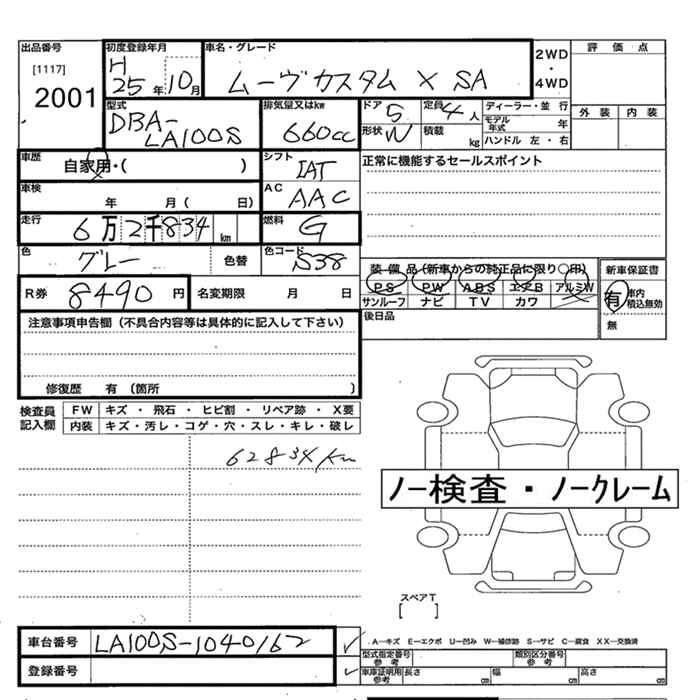 出品番号 [1117] 2001
初度登録年月 H 25年10月
車名・グレード ムーヴカスタム X SA
2WD・4WD
評価点
外装 内装
型式 DBA-LA100S
排気量又はkw 660cc
ドア 5 定員 4人
形状 W 積載 kg
ディーラー・並行
モデル年式 年
ハンドル 左・右
車歴 自家用・( )
シフト IAT
正常に機能するセールスポイント
車検 年 月( 日)
AC AAC
走行 6万2千834km
燃料 G
色 グレー 色替
色コード S38
装備品(新車からの純正品に限り○印)
新車保証書
PS PW ABS エアB アルミW
サンルーフ ナビ TV カワ
有 車内積込無効
無
R券 8490円
名変期限 月 日
後日品
注意事項申告欄(不具合内容等は具体的に記入して下さい)
修復歴 有(箇所 )
検査員記入欄
FW キズ・飛石・ヒビ割・リペア跡・X要
内装 キズ・汚レ・コゲ・穴・スレ・キレ・破レ
62834km
ノー検査・ノークレーム
スペアT
[ ]
車台番号 LA100S-1040162
登録番号
A―キズ E―エクボ U―凹み W―補修跡 S―サビ C―腐食 XX―交換済
型式指定番号 参考
類別区分番号 参考
車庫証明用 参考 長さ cm 幅 cm 高さ cm